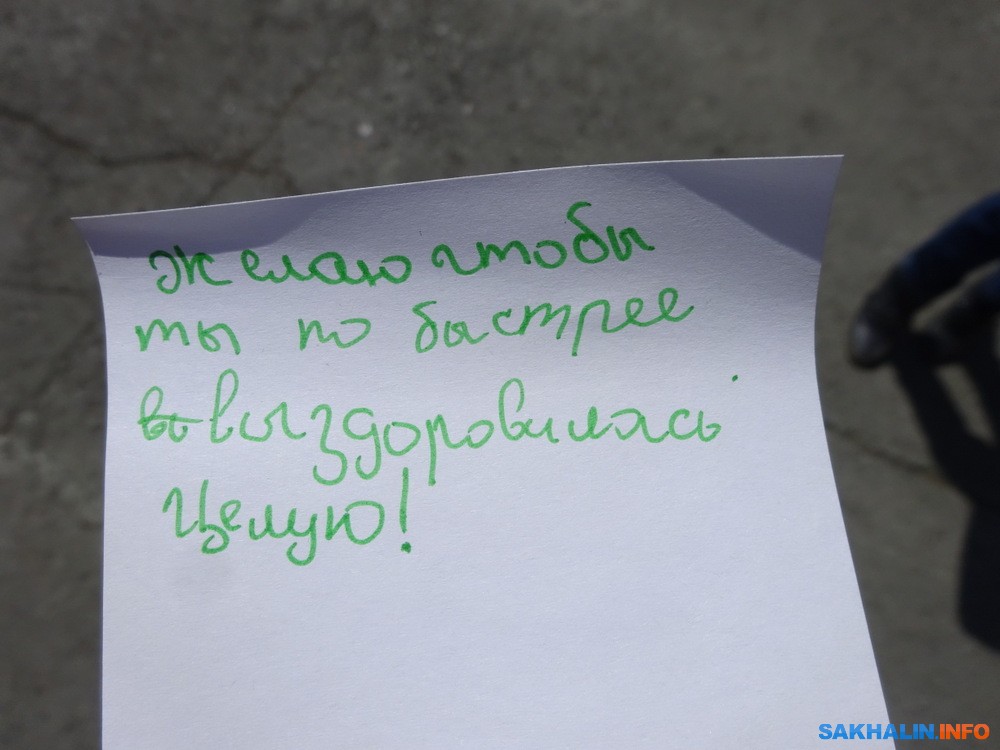 Желаю чтобы
ты по быстрее
выздоровилась
Целую!
SAKHALIN.INFO